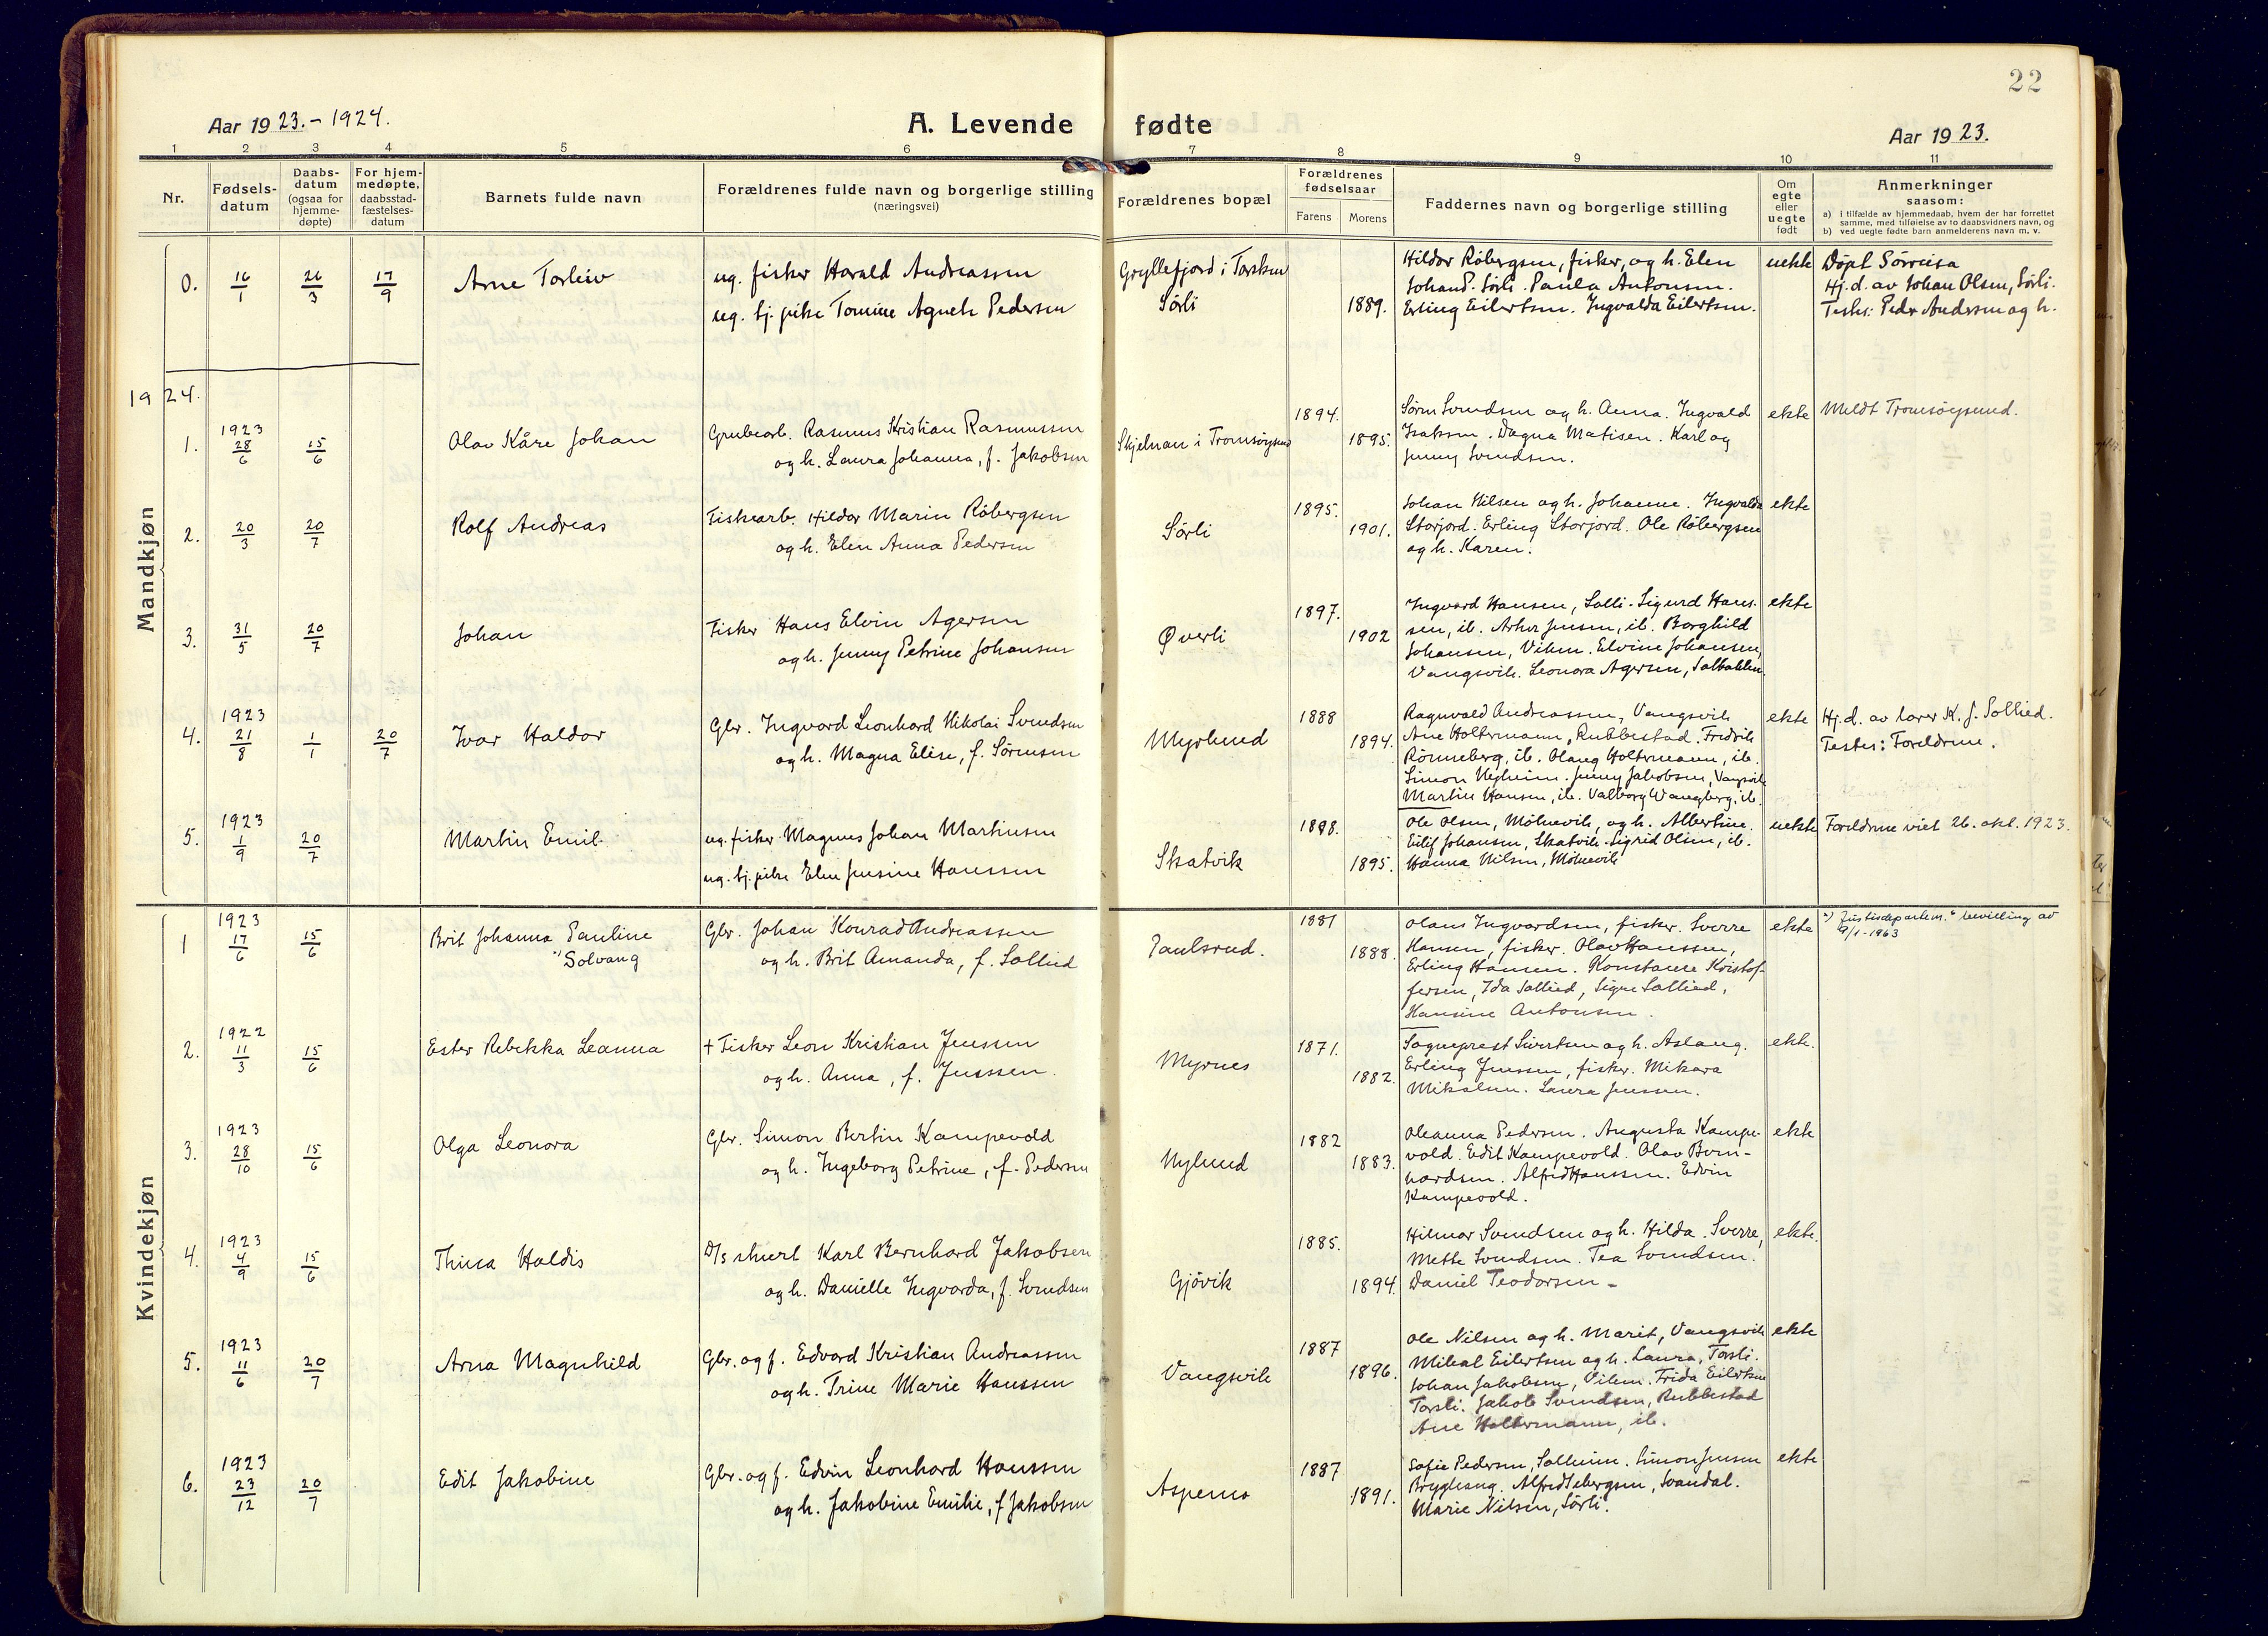 22
Aar 1923.-1924.
A. Levende fødte
Aar 1923.
1 2 3 4 5 6 7 8 9 10 11
Nr.
Fødsels-
datum
Daabs-
datum
(ogsaa for
hjemme-
døpte)
For hjem-
medøpte,
daabsstad-
fæstelses-
datum
Barnets fulde navn
Forældrenes fulde navn og borgerlige stilling
(næringsvei)
Forældrenes bopæl
Forældrenes
fødselsaar
Farens Morens
Faddernes navn og borgerlige stilling
Om
egte
eller
uegte
født
Anmerkninger
saasom:
a) i tilfælde av hjemmedaab, hvem der har forrettet
samme, med tilføielse av to daabsvidners navn, og
b) ved uegte fødte barn anmelderens navn m. v.
Mandkjøn
0. 16/1 26/3 17/9 Arne Torleiv
ug. fisker Harald Andreassen
ug. tj. pike Tomine Agneth Pedersen
Gryllefjord i Torsken
Sørli
1889.
Hildor Röbergsen, fisker, og h. Elen
Johan P. Sørli. Paula Antonsen.
Erling Eilertsen. Ingvalda Eilertsen.
uekte
Døpt Sørreisa
Hj. d. av Johan Olsen, Sørli.
Testes: Peder Andersen og h.
1924.
1. 1923 28/6 15/6 Olav Kåre Johan
Grubearb. Rasmus Kristian Rasmussen
og h. Laura Johanna, f. Jakobsen
Skjelnan i Tromsøysund
1894.
1895.
Sören Svendsen og h. Anna. Ingvald
Isaksen. Dagna Matisen. Karl og
Jenny Svendsen.
ekte
Meldt Tromsøysund.
2. 20/3 20/7 Rolf Andreas
Fiskearb. Hildor Marin Röbergsen
og h. Elen Anna Pedersen
Sørli
1895.
1901.
Johan Nilsen og h. Johanne. Ingvalda
Storjord. Erling Storjord. Ole Röbergsen
og h. Karen.
ekte
3. 31/5 20/7 Johan
Fisker Hans Elvin Agersen
og h. Jenny Petrine Johansen
Øverli
1897.
1902
Ingvard Hansen, Solli. Sigurd Han-
sen, ib. Arthur Jensen, ib. Borghild
Johansen, Viken. Elvine Johansen,
Vangsvik. Leonora Agersen,
ekte
4. 1923 21/8 1/1 20/7 Ivar Haldor
Gbr. Ingvard Leonhard Nikolai Svendsen
og h. Magna Elise, f. Sørensen
Myrlund
1888
1894.
Ragnvald Andreassen, Vangsvik
Ane Holtermann, Rubbestad. Fredrik
Rønneberg, ib. Olaug Holtermann, ib.
Simon Nyheim. Jenny Jakobsen, Vangsvik
Martin Hansen, ib. Valborg Wangberg, ib.
ekte
Hj. d. av lærer K. J. Sollied.
Testes: Foreldrene.
5. 1923 1/9 20/7 Martin Emil
ug. fisker Magnus Johan Martinsen
ug. tj. pike Elen Jensine Hanssen
Skatvik
1898.
1895.
Ole Olsen, Mölnevik, og h. Albertine.
Eilif Johansen, Skatvik. Sigrid Olsen, ib.
Hanna Nilsen, Mölnevik
uekte
Foreldrene viet 26. okt. 1923.
Kvindekjøn
1 1923 17/6 15/6 Brit Johanna Pauline
*) Solvang
Gbr. Johan Konrad Andreassen
og h. Brit Amanda, f. Sollied
Paulsrud.
1881
1888.
Olaus Ingvardsen, fisker. Sverre
Hansen, fisker. Olav Hanssen,
Erling Hansen. Konstanse Kristof-
fersen, Ida Sollied, Signe Sollied,
Hansine Antonsen.
ekte
*) Justisdepartem.s bevilling av
9/1-1963
2. 1922 11/3 15/6 Ester Rebekka Leanna
+ Fisker Leon Kristian Jenssen
og h. Anna, f. Jenssen.
Myrnes
1871.
1882.
Sogneprest Sivertsen og h. Aslaug.
Erling Jenssen, fisker. Mikara
Mikalsen. Laura Jenssen.
ekte.
3. 1923 28/10 15/6 Olga Leonora
Gbr. Simon Bertin Kampevold
og h. Ingeborg Petrine, f. Pedersen
Nylund
1882
1883.
Oleanna Pedersen. Augusta Kampe-
vold. Edit Kampevold. Olav Bern-
hardsen. Alfred Hanssen. Edvin
Kampevold.
ekte
4. 1923 4/9 15/6 Thina Haldis
D/s stuert Karl Bernhard Jakobsen
og h. Danielle Ingvarda, f. Svendsen
Gjøvik
1885.
1894.
Hilmar Svendsen og h. Hilda. Sverre,
Mette Svendsen. Tea Svendsen.
Daniel Teodorsen.
ekte.
5. 1923 11/6 20/7 Arna Magnhild
Gbr. og f. Edvard Kristian Andreassen
og h. Trine Marie Hanssen
Vangsvik
1887
1896.
Ole Nilsen og h. Marit, Vangsvik
Mikal Eilertsen og h. Laura, Torsli.
Johan Jakobsen, Viken. Frida Eilertsen
Torsli. Jakob Svendsen, Rubbestad
Ane Holtermann, ib.
ekte
6. 1923 23/12 20/7 Edit Jakobine
Gbr. og f. Edvin Leonhard Hanssen
og h. Jakobine Emilie, f. Jakobsen
Aspenes
1887
1891.
Sofie Pedersen, Solheim. Simon Jensen
Brygghaug. Alfred Sebergsen, Svandal.
Marie Nilsen, Sørli.
ekte